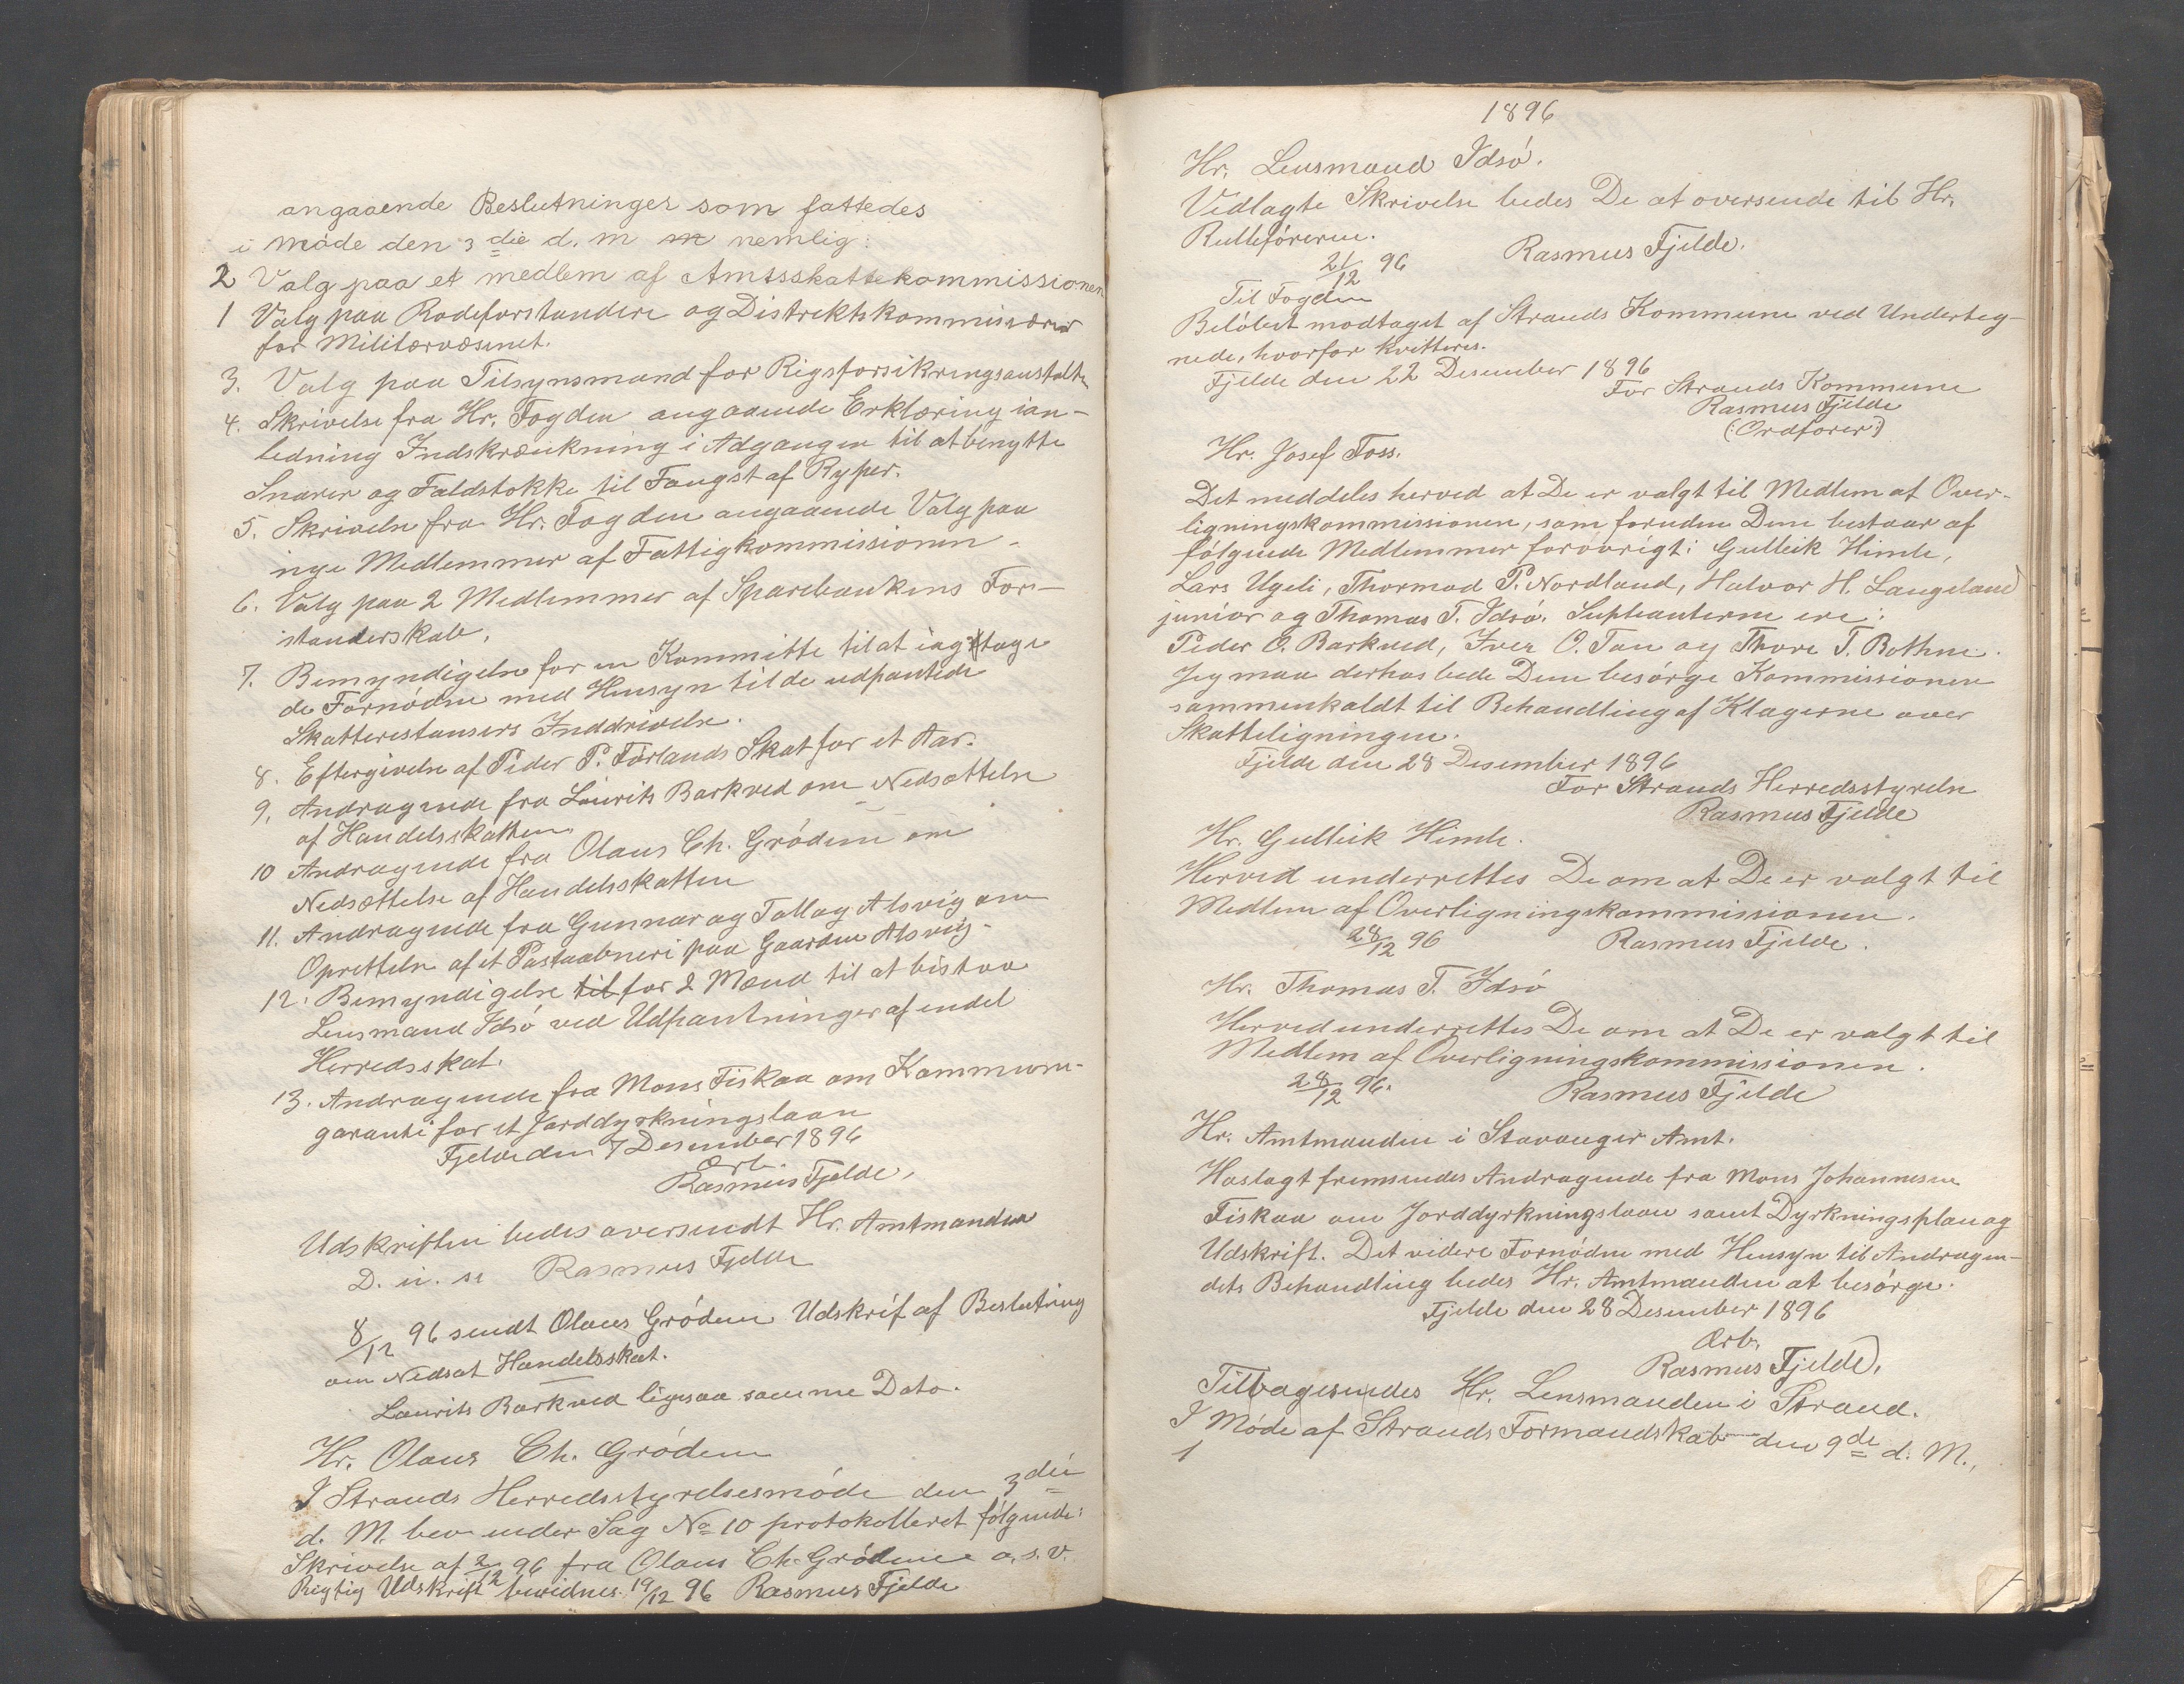 angaaende Beslutninger som fattedes
i Møde den 3 die d. M nemlig:
2 Valg paa et medlem af Amtsskattekommissionen
1 Valg paa Rodeforstandere og Distriktskommissærer
for Militærvæsenet.
3. Valg paa Tilsynsmand for Rigsforsikringsanstalten
4. Skrivelse fra Hr. Fogden angaaende Erklæring ian-
ledning Indskrænkning i Adgangen til at benytte
Snarer og Faldstokke til Fangst af Ryper.
5. Skrivelse fra Hr. Fogden angaaende Valg paa
nye Medlemmer af Fattigkommissionen.
6. Valg paa 2 Medlemmer af Sparebankens For-
standerskab.
7. Bemyndigelse for en Kommitte til at iagttage
de Fornødne med Hensyn til de udpantede
Skatterestansers Inddrivelse.
8. Eftergivelse af Peder P. Førlands Skat for et Aar.
9. Andragende fra Laurits Barkved om Nedsættelse
af Handelsskatten
10 Andragende fra Olaus Ch. Grødem om
Nedsættelse af Handelsskatten
11. Andragende fra Gunnar og Tallag Alsvig om
Oprettelse af et Postaabneri paa Gaarden Alsvig.
12. Bemyndigelse til for 2 Mænd til at bistaa
Lensmand Idsø ved Udpantninger af endel
Herredsskat.
13. Andragende fra Mons Fiskaa om Kommune-
garanti for et Jorddyrkningslaan
Fjelde den 7 Desember 1896
Ærb.
Rasmus Fjelde,
Udskriften bedes oversendt Hr. Amtmanden
D. u. s. Rasmus Fjelde
8/12 96 sendt Olaus Grødem Udskrif af Beslutning
om Nedsat Handelsskat.
Laurits Barkved ligesaa samme Dato.
Hr. Olaus Ch. Grødem
I Strands Herredsstyrelsesmøde den 3 die
d. M. blev under Sag No 10 protokolleret følgende:
Skrivelse af 2/12 96 fra Olaus Ch. Grødem o. s. v.
Rigtig Udskrift bevidnes. 19/12 96 Rasmus Fjelde
1896
Hr. Lensmand Idsø.
Vedlagte Skrivelse bedes De at oversende til Hr.
Rulleføreren.
21/12 96 Rasmus Fjelde.
Til Fogden
Beløbet modtaget af Strands Kommune ved Underteg-
nede, hvorfor kvitteres.
Fjelde den 22 Desember 1896
For Strands Kommune
Rasmus Fjelde
(:Ordfører:)
Hr. Josef Foss.
Det meddeles herved at De er valgt til Medlem af Over-
ligningskommissionen, som foruden Dem bestaar af
følgende Medlemmer forøvrigt: Gulleik Himle,
Lars Ugeli, Thormod P. Nordland, Halvor H. Langeland
junior og Thomas T. Idsø. Supleanterne ere:
Peder O. Barkved, Iver O. Tau og Thore T. Bothne.
Jeg maa derhos bede Dem besørge Kommissionen
sammenkaldt til Behandling af Klagerne over
Skatteligningen.
Fjelde den 28 Desember 1896
For Strands Herredsstyrelse
Rasmus Fjelde
Hr. Gulleik Himle.
Herved underrettes De om at De er valgt til
Medlem af Overligningskommissionen.
28/12 96 Rasmus Fjelde.
Hr. Thomas T. Idsø
Herved underrettes De om at De er valgt til
Medlem af Overligningskommissionen.
28/12 96. Rasmus Fjelde
Hr. Amtmanden i Stavanger Amt.
Hoslagt fremsendes Andragende fra Mons Johannesen
Fiskaa om Jorddyrkningslaan samt Dyrkningsplan og
Udskrift. Det videre Fornødne med Hensyn til Andragen-
dets Behandling bedes Hr. Amtmanden at besørge.
Fjelde den 28 Desember 1896
Ærb.
Rasmus Fjelde,
Tilbagesendes Hr. Lensmanden i Strand.
I Møde af Strands Formandskab den 9 de d. M.,
1